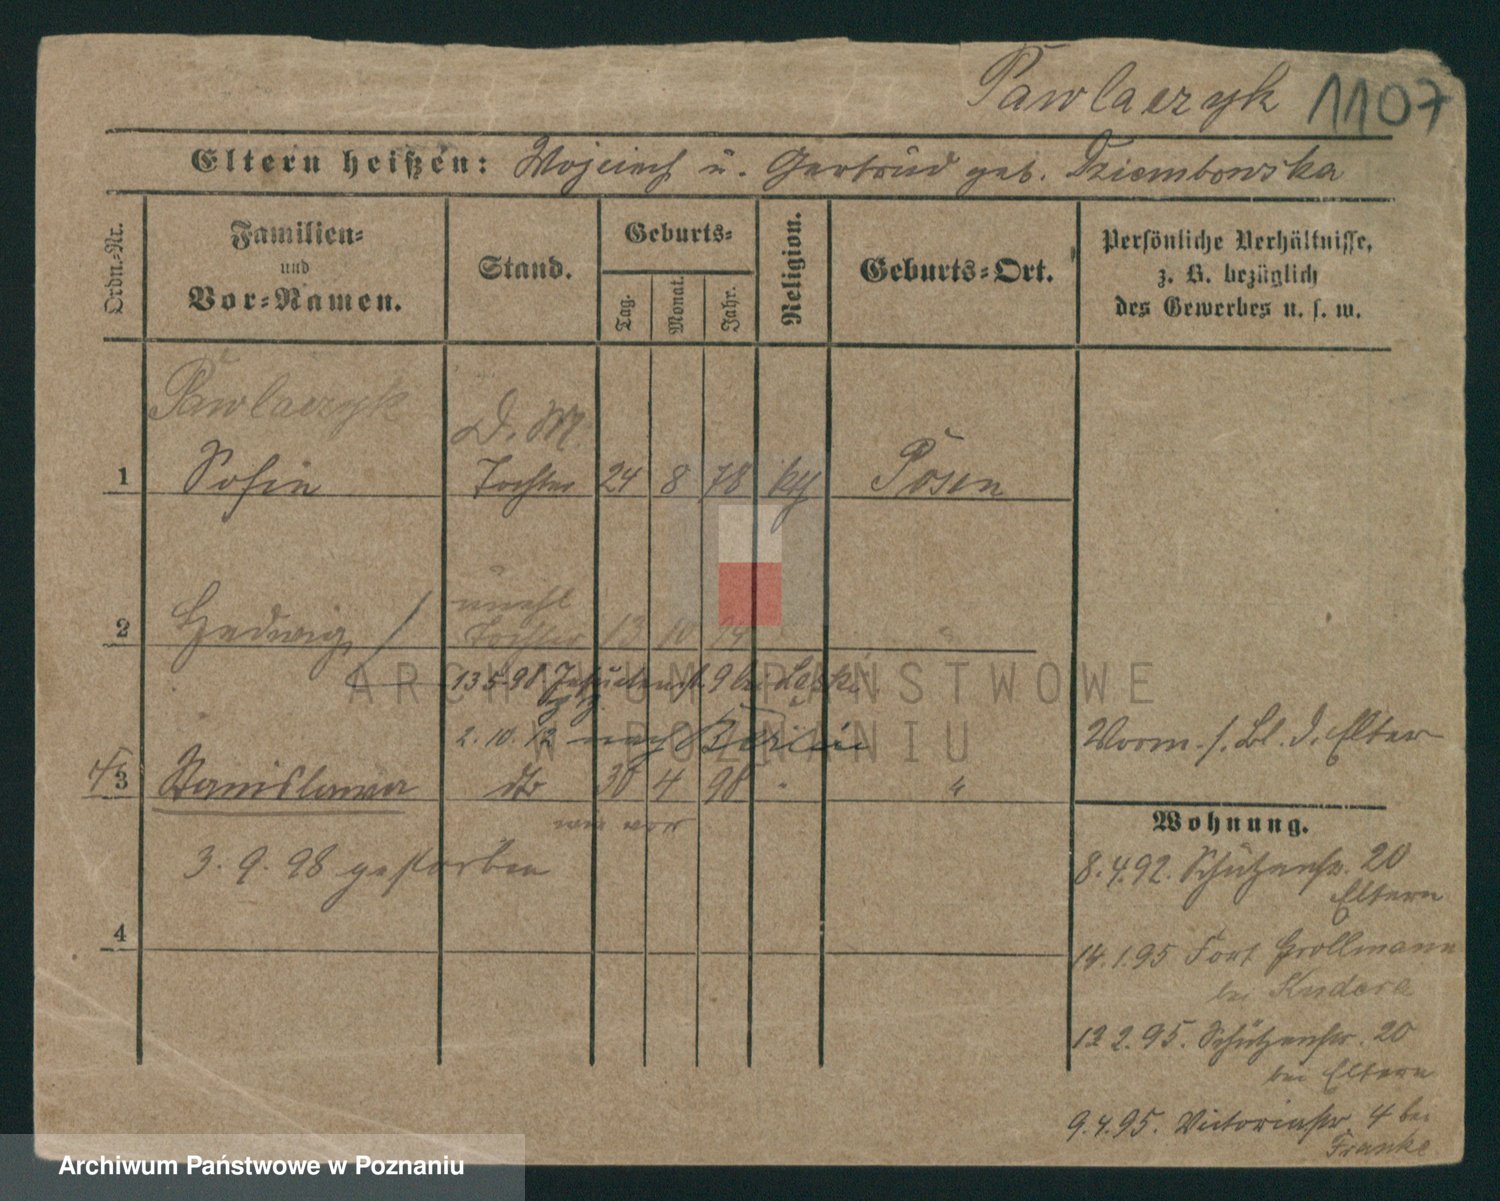 Pawlaczyk 1107
Eltern heißen: Wojciech u. Gertrud geb. Dziembowska
Ordn.-Nr.
Familien-
und
Vor-Namen.
Stand.
Geburts-
Tag.
Monat.
Jahr.
Religion.
Geburts-Ort.
Persönliche Verhältnisse,
z. B. bezüglich
des Gewerbes u. s. w.
Pawlaczyk
D. M.
1 Sofie Tochter 24 8 78 kth Posen
unehl
2 Hedwig Tochter 13 10 "
13 5 98 Jesuitenstr. 9 bei
2. 10. 12 nach Berlin
3 Stanislawa dto 30 4 98 " "
wie vor
3. 9. 98 gestorben
4
Vorm. s. Bl. d. Elter
Wohnung.
8. 4. 92. Schützenstr. 20
Eltern
14. 1. 95 Fort Grollmann
bei Kudera
12 2. 95. Schützenstr. 20
bei Eltern
9. 4. 95. Victoriastr. 4 bei
Franke
ARCHIWUM PAŃSTWOWE
W POZNANIU
Archiwum Państwowe w Poznaniu